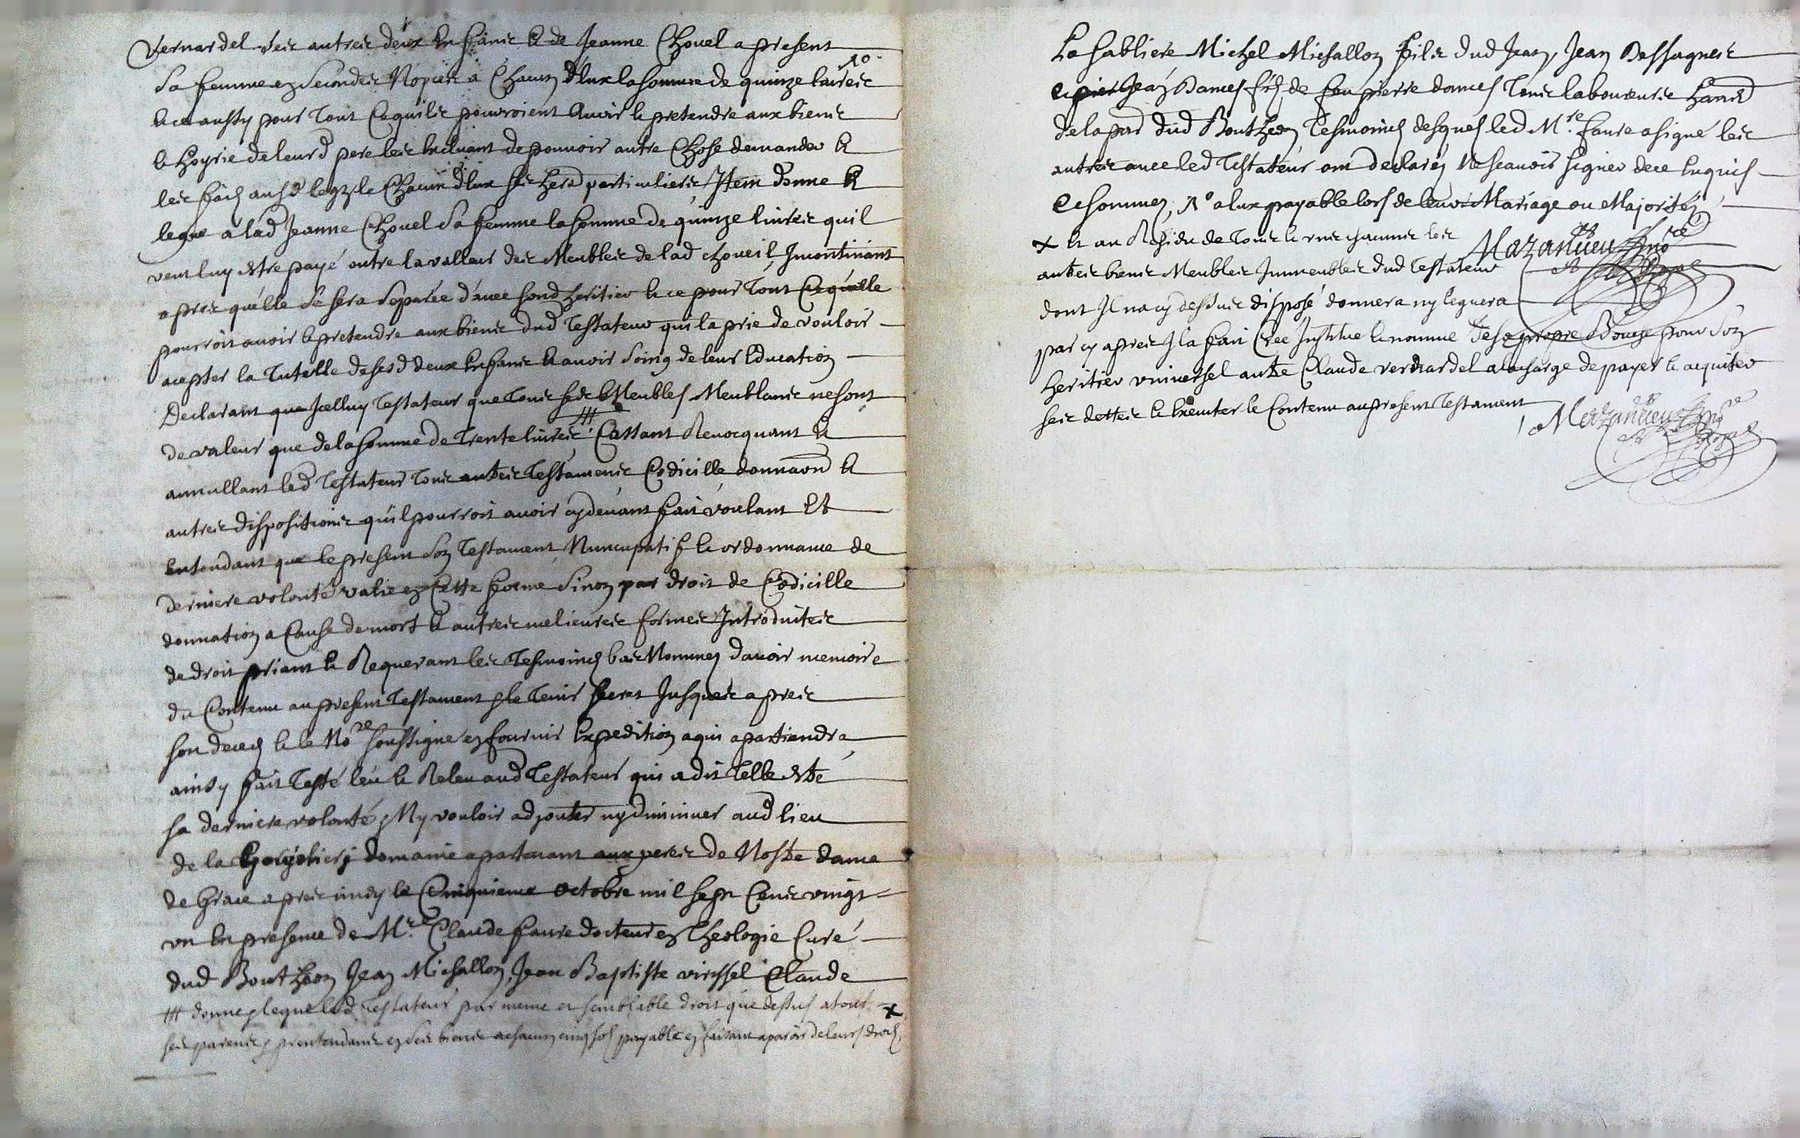 Vernardel ses autres deux enfans & de Jeanne Chovel a present
sa femme en secondes Nopces a Chacun d'Eux la somme de quinze livres No
& ce aussy pour tout ce quils pouvroient Avoir & pretendre aux biens
& hoyrie de leurd pere les Excluant de pouvoir autre Chose demander &
les fait aud legz & Chacun d'Eux ses herd particuliers Item donne &
legue a lad Jeanne Chovel sa femme la somme de quinze livres quil
veut luy estre payé outre la valleur des Meubles de lad Choveil Incontinant
apres quelle se sera separée d'avec sond heritier & ce pour tout Ce quelle
pourroit avoir & pretendre aux biens dud Testateur qui la prie de vouloir
acepter la Tutelle de sesd deux Enfans & avoir soing de leur Education
Declarant que Icelluy Testateur que tous ses Meubles Meublans ne sont
de valeur que de la somme de trente livres /// Cassant Revocquant &
annullant led Testateur tous autres Testamens Codicille donnaôn &
autres dispositions quil pourroit avoir cy devant fait voulant Et
Entendant que le present son Testament Nuncupatif & ordonnance de
derniere volonté valie en Cette forme sinon par droit de Codicille
donnation a Cause de mort & autres melieures formes Introduites
de droit priant & Requerant les Tesmoings bas Nommez davoir memoire
du Contenu au present Testament & le Tenir secret Jusques apres
son deces & le Nore soussigne en fournir Expedition a qui apartiendra
ainsy fait Testé leu & Releu aud Testateur qui a dit Telle Estre
sa derniere volonté, Ny vouloir adjouter ny diminuer aud lieu
de la domaine apartenant aux peres de Nostre dame
de Grace apres midy le Cinquieme octobre mil sept Cens vingt
un En presence de Mre Claude faure docteur en Theologie Curé
dud Bontheon Jean Michallon, Jean Baptiste virissel Claude
/// donne & legue led Testateur par meme et semblable droit que dessus a tous x
ses parens & prentendans en ses biens a chacun cinq sols payable en faisant aparoir de leurs droits
La sabliere Michel Michallon fils dud Jean, Jean Dessagnes
Jean Dames fils de feu pierre dames Tous laboureurs
de la par dud Bontheon Tesmoins desquels led Mre faure a signé les
autres avec led Testateur ont declarés Ne scavoir signer de ce Enquis
& sommez, No a Eux payable lors de leur Mariage ou Majorités
x & au Residu de tous & uns chacuns les Mazancieux Nore
autres biens Meubles Immeubles dud Testateur Royal
dont Il na cy dessus disposé donnera ny leguera
par cy apres Il a fait Cree Institue & nomme de sa propre Bouche pour son
heritier universel autre Claude vernardel a la charge de payer & acquiter
ses dettes & Executer le Contenu au present Testament Mazancieux Nore
Royal